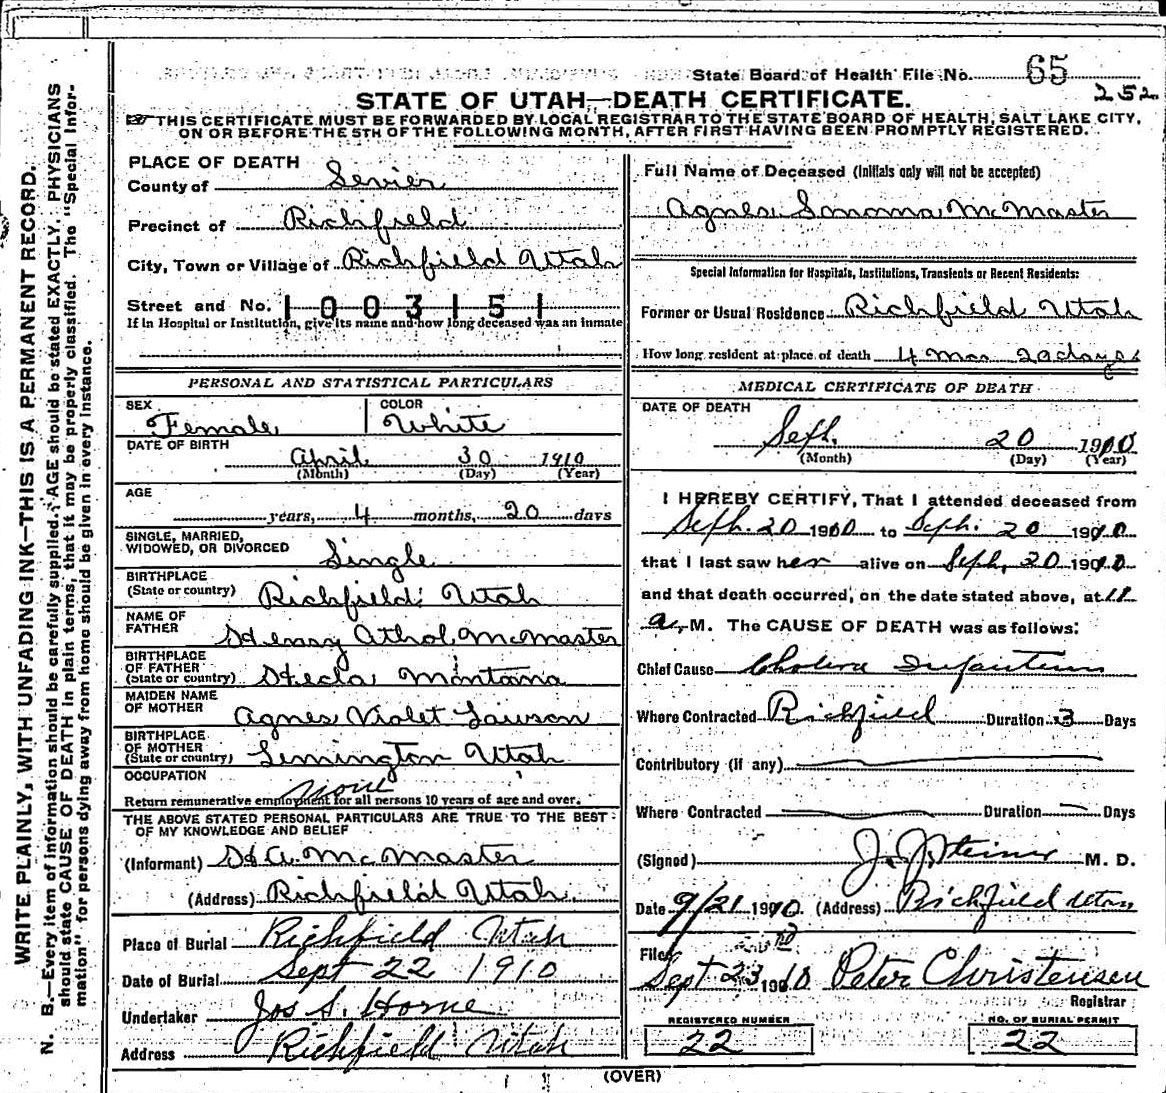 State Board of Health File No. 65
252
STATE OF UTAH—DEATH CERTIFICATE.
THIS CERTIFICATE MUST BE FORWARDED BY LOCAL REGISTRAR TO THE STATE BOARD OF HEALTH, SALT LAKE CITY,
ON OR BEFORE THE 5TH OF THE FOLLOWING MONTH, AFTER FIRST HAVING BEEN PROMPTLY REGISTERED.
WRITE PLAINLY, WITH UNFADING INK—THIS IS A PERMANENT RECORD.
N. B.—Every item of information should be carefully supplied. AGE should be stated EXACTLY. PHYSICIANS
should state CAUSE OF DEATH in plain terms, that it may be properly classified. The "Special Infor-
mation" for persons dying away from home should be given in every instance.
PLACE OF DEATH
County of Sevier
Precinct of Richfield
City, Town or Village of Richfield Utah
Street and No. 1003151
If in Hospital or Institution, give its name and how long deceased was an inmate
PERSONAL AND STATISTICAL PARTICULARS
SEX Female
COLOR White
DATE OF BIRTH
April 30 1910
(Month) (Day) (Year)
AGE
years, 4 months, 20 days
SINGLE, MARRIED,
WIDOWED, OR DIVORCED Single
BIRTHPLACE
(State or country) Richfield Utah
NAME OF
FATHER Henry Athol McMaster
BIRTHPLACE
OF FATHER
(State or country) Hecla Montana
MAIDEN NAME
OF MOTHER Agnes Violet Lawson
BIRTHPLACE
OF MOTHER
(State or country) Lemington Utah
OCCUPATION
None
Return remunerative employment for all persons 10 years of age and over.
THE ABOVE STATED PERSONAL PARTICULARS ARE TRUE TO THE BEST
OF MY KNOWLEDGE AND BELIEF
(Informant) H A McMaster
(Address) Richfield Utah.
Place of Burial Richfield Utah
Date of Burial Sept 22 1910
Undertaker Jos S. Horne
Address Richfield Utah
Full Name of Deceased (Initials only will not be accepted)
Agnes Sonoma McMaster
Special Information for Hospitals, Institutions, Transients or Recent Residents:
Former or Usual Residence Richfield Utah
How long resident at place of death 4 mos 20 days
MEDICAL CERTIFICATE OF DEATH
DATE OF DEATH
Seph. 20 1910
(Month) (Day) (Year)
I HEREBY CERTIFY, That I attended deceased from
Seph. 20 1910 to Seph. 20 1910
that I last saw her alive on Seph. 20 1910
and that death occurred, on the date stated above, at 11
a. M. The CAUSE OF DEATH was as follows:
Chief Cause Cholera Infantum
Where Contracted Richfield Duration 3 Days
Contributory (if any)
Where Contracted Duration Days
(Signed) J. J. Steiner M. D.
Date 9/21 1910. (Address) Richfield Utah
Filed
Sept 23 1910 Peter Christensen
Registrar
REGISTERED NUMBER
22
NO. OF BURIAL PERMIT
22
(OVER)